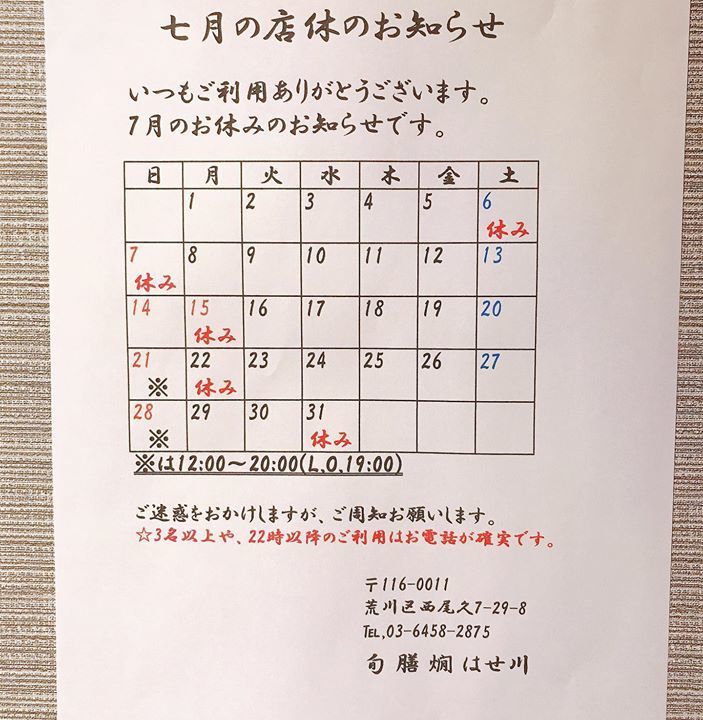 七月の店休のお知らせ
いつもご利用ありがとうございます。
7月のお休みのお知らせです。
日 月 火 水 木 金 土
1 2 3 4 5 6
休み
7 8 9 10 11 12 13
休み
14 15 16 17 18 19 20
休み
21 22 23 24 25 26 27
※ 休み
28 29 30 31
※ 休み
※は12:00～20:00(L,O,19:00)
ご迷惑をおかけしますが、ご周知お願いします。
☆3名以上や、22時以降のご利用はお電話が確実です。
〒116-0011
荒川区西尾久7-29-8
TEL,03-6458-2875
旬膳燗はせ川